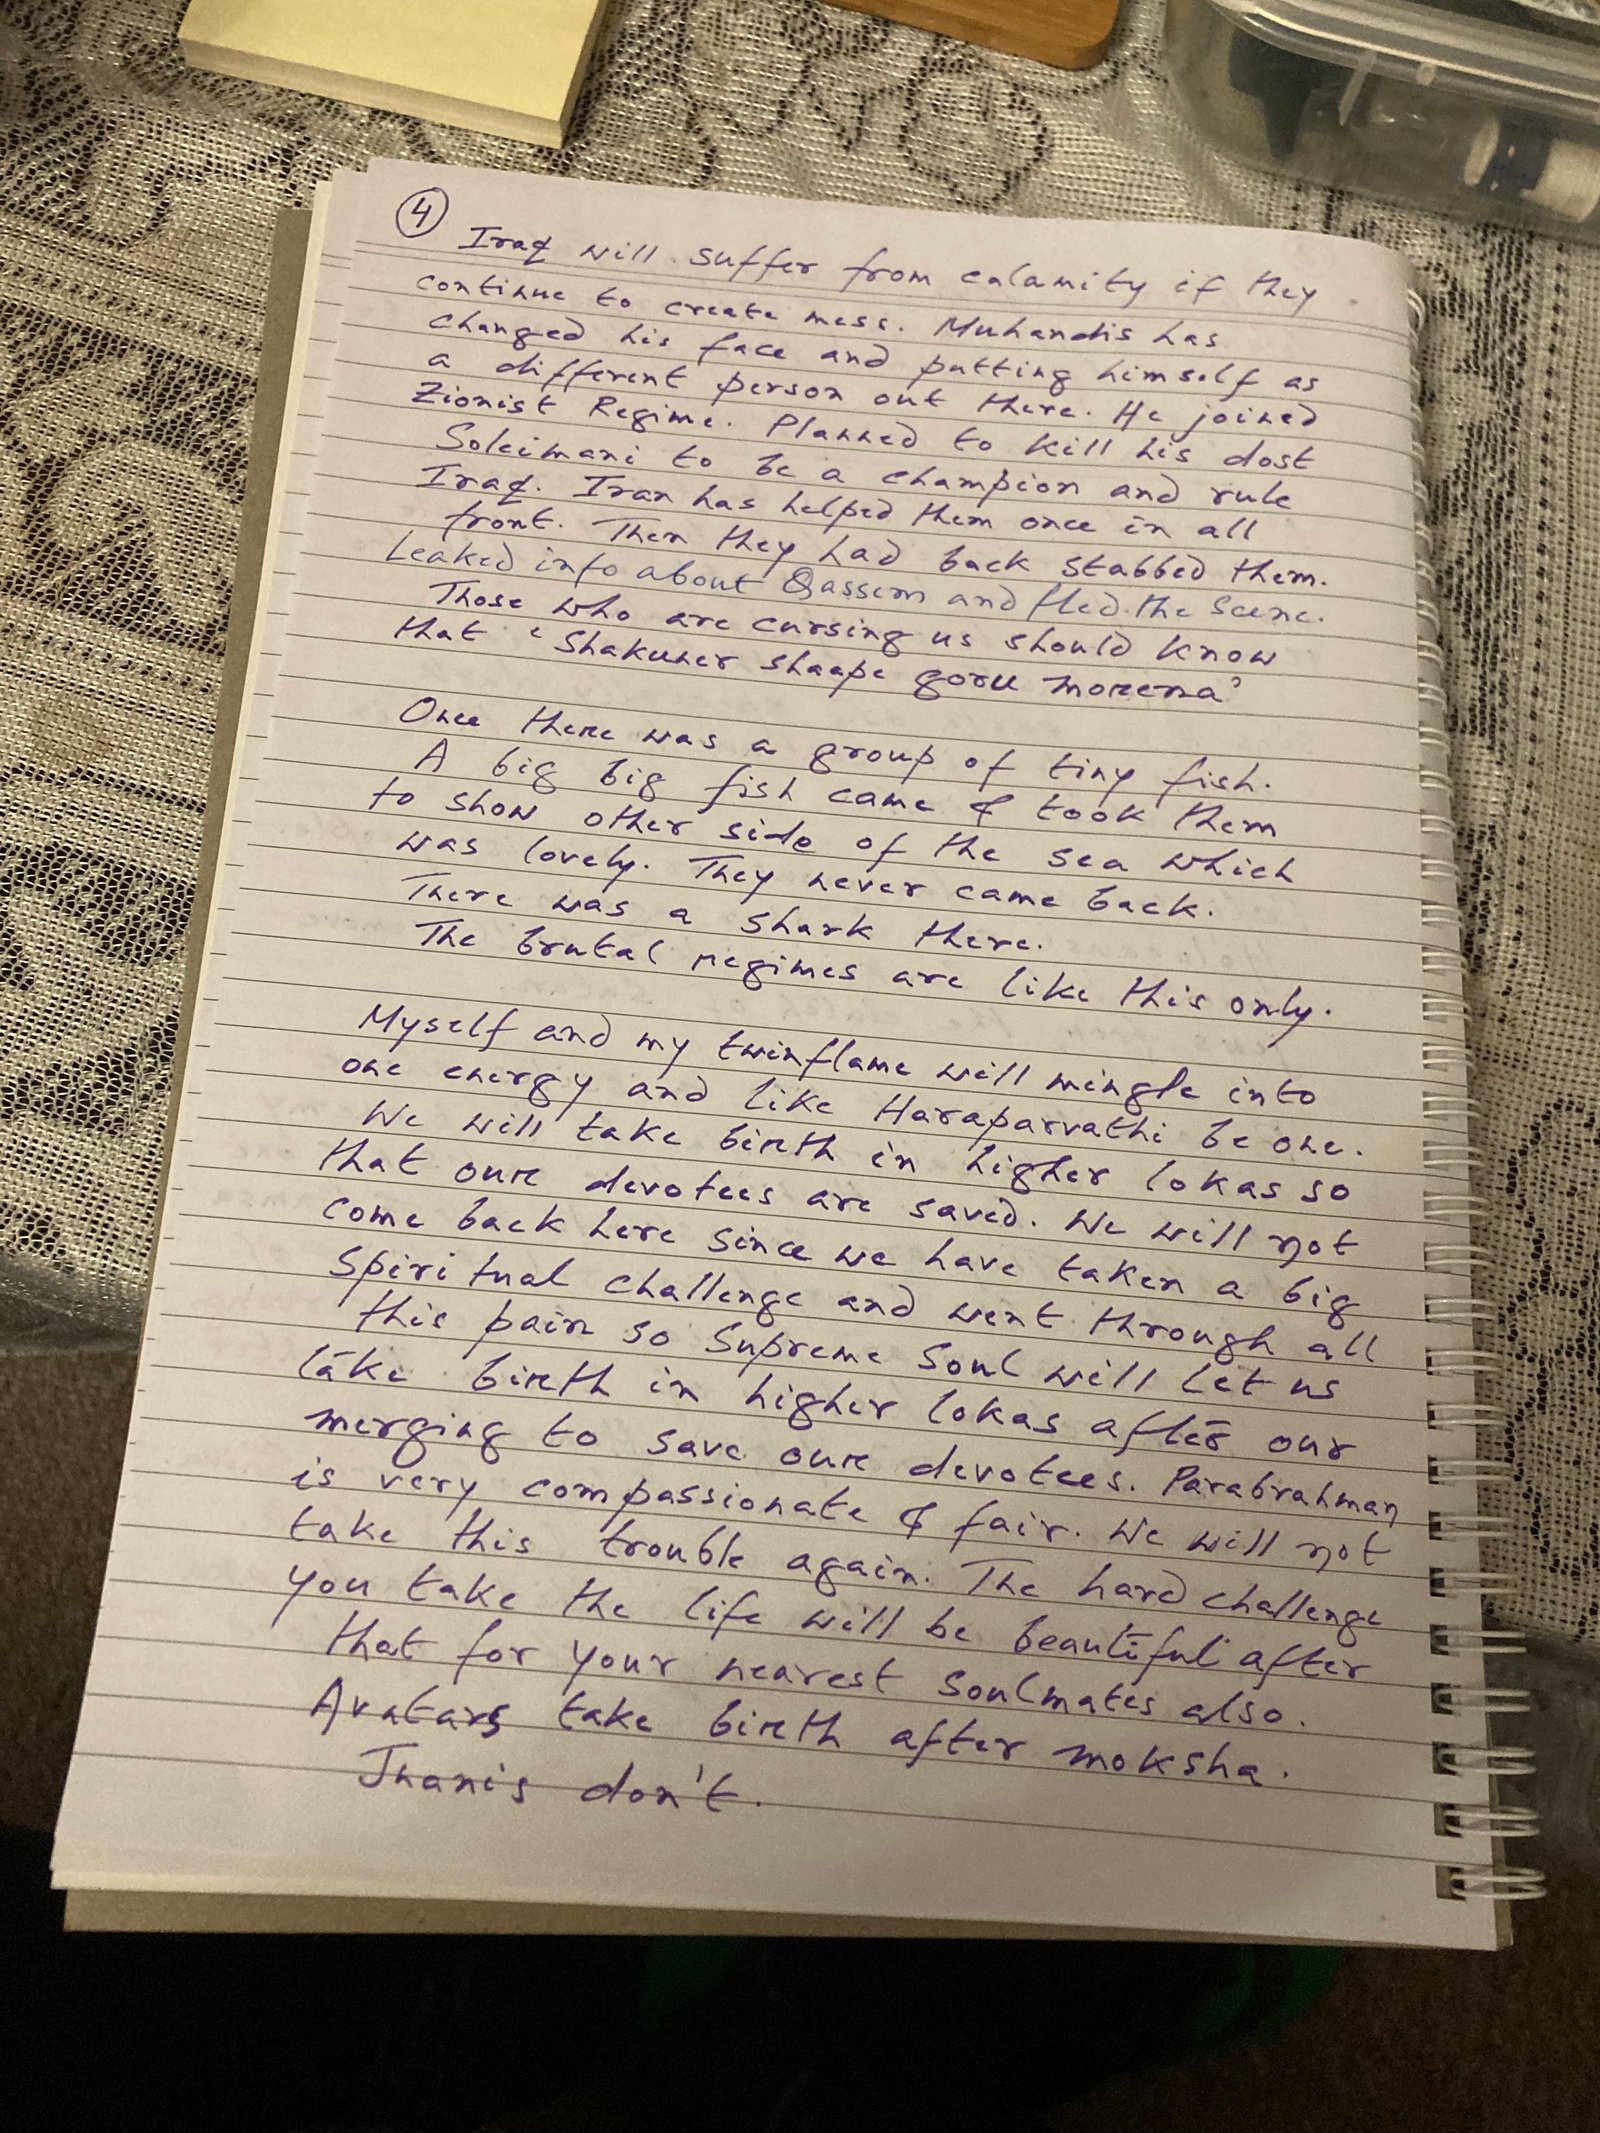 4
Iraq will suffer from calamity if they
continue to create mess. Muhandis has
changed his face and putting himself as
a different person out there. He joined
Zionist Regime. Planned to kill his dost
Soleimani to be a champion and rule
Iraq. Iran has helped them once in all
front. Then they had back stabbed them.
Leaked info about Qassem and fled the scene.
Those who are cursing us should know
that 'Shakuner shaape goru morena'
Once there was a group of tiny fish.
A big big fish came & took them
to show other side of the sea which
was lovely. They never came back.
There was a shark there.
The brutal regimes are like this only.
Myself and my twinflame will mingle into
one energy and like Haraparvathi be one.
We will take birth in higher lokas so
that our devotees are saved. We will not
come back here since we have taken a big
spiritual challenge and went through all
this pain so Supreme Soul will let us
take birth in higher lokas after our
merging to save our devotees. Parabrahman
is very compassionate & fair. We will not
take this trouble again. The hard challenge
you take the life will be beautiful after
that for your nearest soulmates also.
Avatars take birth after moksha.
Jnanis don't.